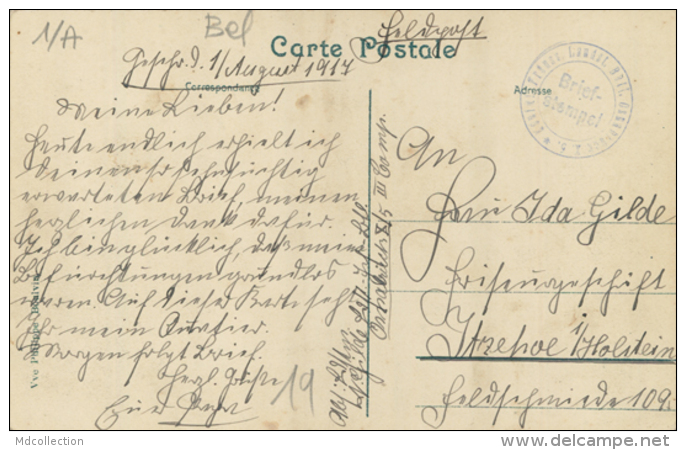 1/A
Bel
Feldpost
Carte Postale
Geschr. d. 1/August 1917
Correspondance
Adresse
Brief-
stempel
Meine Lieben!
Heute endlich erhielt ich
Deinen so sehnsüchtig
erwarteten Brief, meinen
herzlichen Dank dafür.
Ich bin glücklich, daß meine
Befürchtungen grundlos
waren. Auf dieser Karte seht
Ihr mein Quartier.
Morgen folgt Brief.
Herzl. Grüße
Euer Papa
19
An
Frau Ida Gilde
Friseurgeschäft
Itzehoe i/Holstein
Feldschmiede 109.
Abs:
Gilde
III Comp.
Vve Philippe
Mdcollection
www.delcampe.net